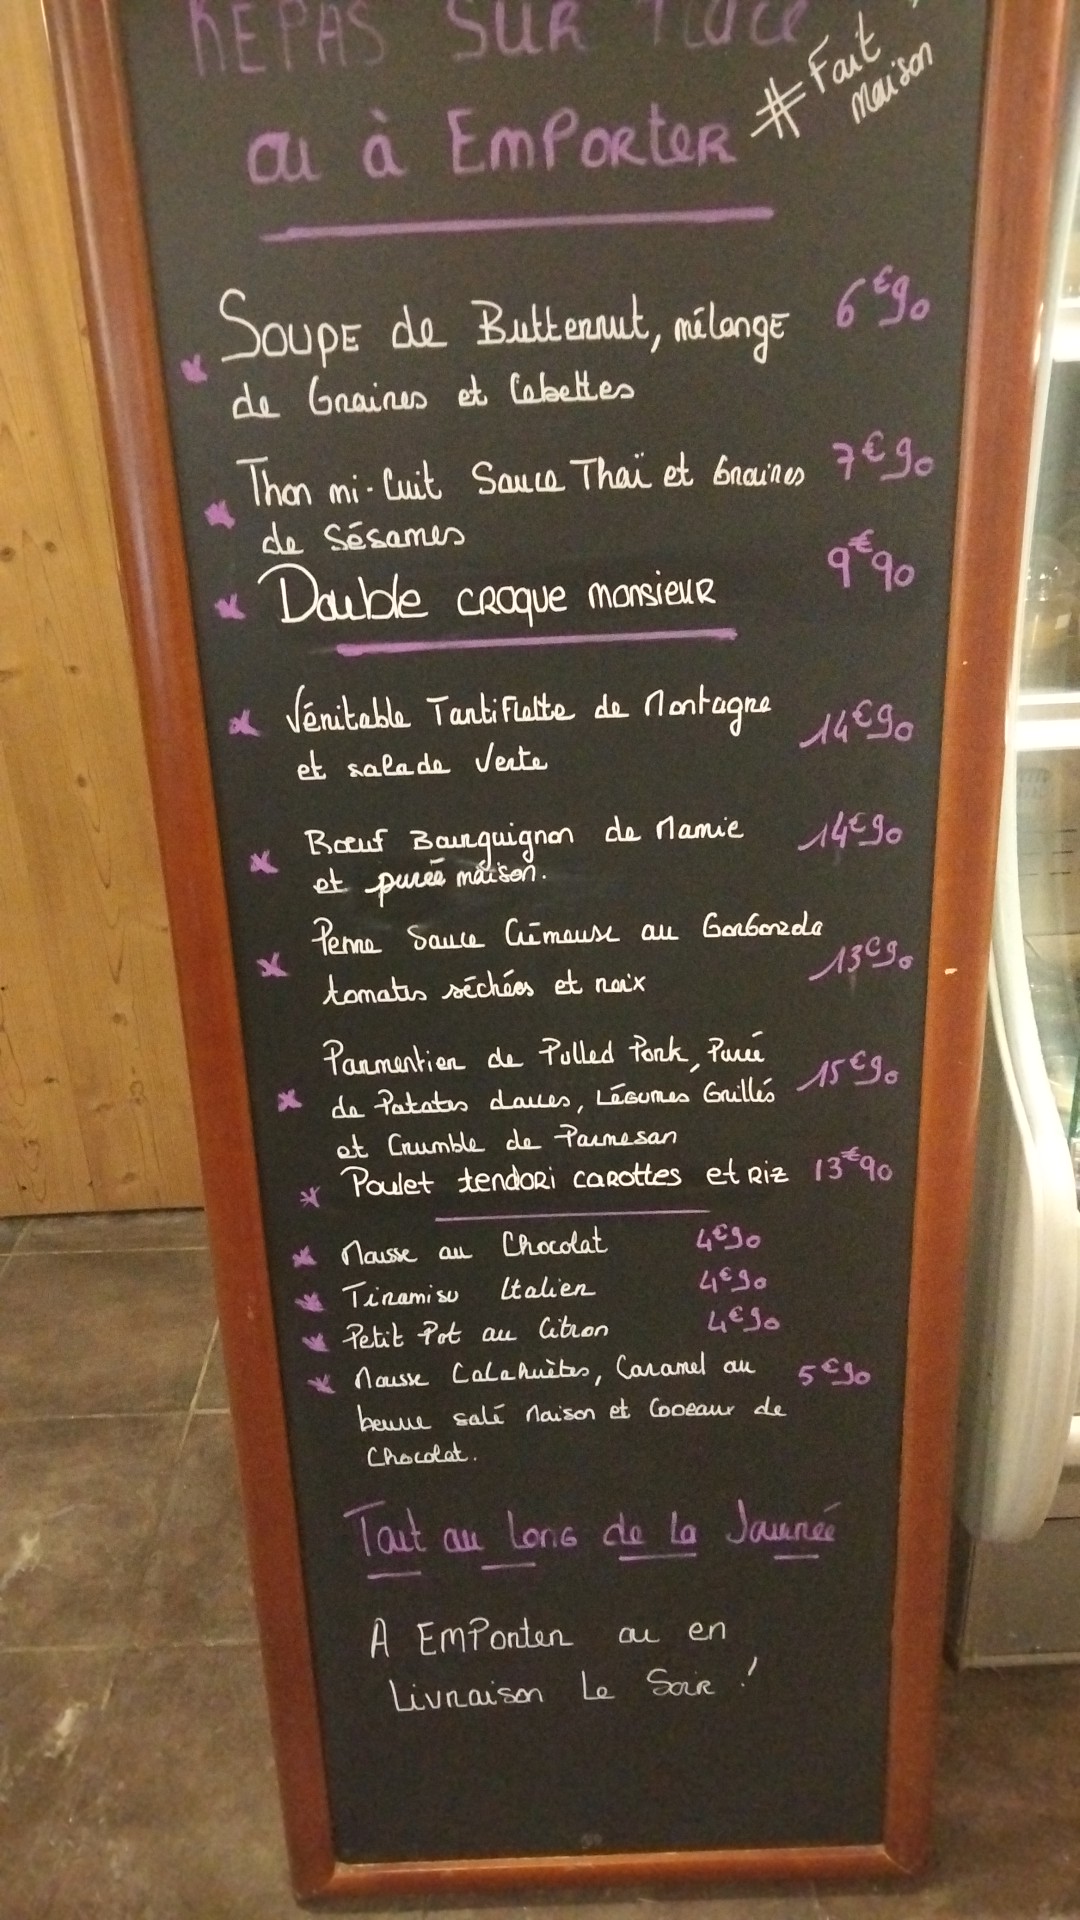 REPAS SUR Place
#Fait Maison
ou à EmPorter
Soupe de Butternut, mélange 6€90
de Graines et Cebettes
Thon mi-Cuit Sauce Thaï et Graines 7€90
de Sésames
Double croque monsieur 9€90
Véritable Tartiflette de Montagne 14€90
et salade Verte
Bœuf Bourguignon de Mamie 14€90
et purée maison.
Penne Sauce Crémeuse au Gorgonzola
tomates séchées et noix 13€90
Parmentier de Pulled Pork, Purée
de Patates douces, Légumes Grillés 15€90
et Crumble de Parmesan
Poulet tendori carottes et Riz 13€90
Mousse au Chocolat 4€90
Tiramisu Italien 4€90
Petit Pot au Citron 4€90
Mousse Cacahuètes, Caramel au 5€90
beurre salé Maison et Copeaux de
Chocolat.
Tout au Long de la Journée
A EmPorter ou en
Livraison Le Soir !